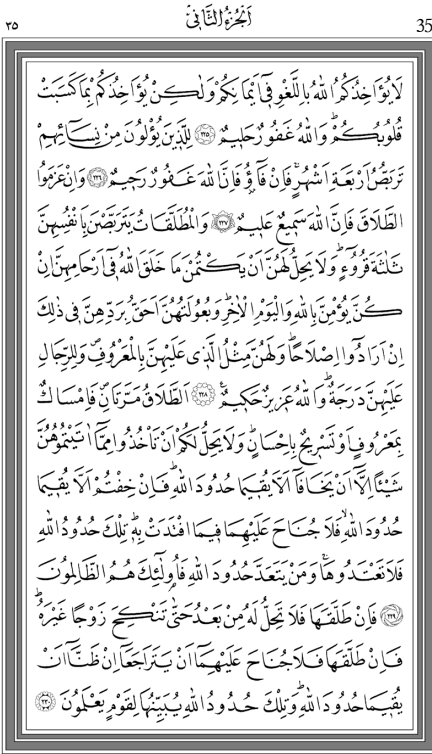 ٣٥
اَلْجُزْءُ الثَّانِي
35
لَا يُؤَاخِذُكُمُ اللّٰهُ بِاللَّغْوِ فِٓي اَيْمَانِكُمْ وَلٰكِنْ يُؤَاخِذُكُمْ بِمَا كَسَبَتْ
قُلُوبُكُمْۜ وَاللّٰهُ غَفُورٌ حَلِيمٌ ﴿٢٢٥﴾ لِلَّذِينَ يُؤْلُونَ مِنْ نِسَٓائِهِمْ
تَرَبُّصُ اَرْبَعَةِ اَشْهُرٍۚ فَاِنْ فَٓاؤُ۫ فَاِنَّ اللّٰهَ غَفُورٌ رَحِيمٌ ﴿٢٢٦﴾ وَاِنْ عَزَمُوا
الطَّلَاقَ فَاِنَّ اللّٰهَ سَمِيعٌ عَلِيمٌ ﴿٢٢٧﴾ وَالْمُطَلَّقَاتُ يَتَرَبَّصْنَ بِاَنْفُسِهِنَّ
ثَلٰثَةَ قُرُٓوءٍۜ وَلَا يَحِلُّ لَهُنَّ اَنْ يَكْتُمْنَ مَا خَلَقَ اللّٰهُ فِٓي اَرْحَامِهِنَّ اِنْ
كُنَّ يُؤْمِنَّ بِاللّٰهِ وَالْيَوْمِ الْاٰخِرِۜ وَبُعُولَتُهُنَّ اَحَقُّ بِرَدِّهِنَّ فِي ذٰلِكَ
اِنْ اَرَادُٓوا اِصْلَاحًاۜ وَلَهُنَّ مِثْلُ الَّذِي عَلَيْهِنَّ بِالْمَعْرُوفِۖ وَلِلرِّجَالِ
عَلَيْهِنَّ دَرَجَةٌۜ وَاللّٰهُ عَزِيزٌ حَكِيمٌ۟ ﴿٢٢٨﴾ اَلطَّلَاقُ مَرَّتَانِۖ فَاِمْسَاكٌ
بِمَعْرُوفٍ اَوْ تَسْرِيحٌ بِاِحْسَانٍۜ وَلَا يَحِلُّ لَكُمْ اَنْ تَأْخُذُوا مِمَّٓا اٰتَيْتُمُوهُنَّ
شَيْـًٔا اِلَّٓا اَنْ يَخَافَٓا اَلَّا يُقِيمَا حُدُودَ اللّٰهِۜ فَاِنْ خِفْتُمْ اَلَّا يُقِيمَا
حُدُودَ اللّٰهِۙ فَلَا جُنَاحَ عَلَيْهِمَا فِيمَا افْتَدَتْ بِهِۜ تِلْكَ حُدُودُ اللّٰهِ
فَلَا تَعْتَدُوهَاۚ وَمَنْ يَتَعَدَّ حُدُودَ اللّٰهِ فَاُو۬لٰٓئِكَ هُمُ الظَّالِمُونَ
﴿٢٢٩﴾ فَاِنْ طَلَّقَهَا فَلَا تَحِلُّ لَهُ مِنْ بَعْدُ حَتّٰى تَنْكِحَ زَوْجًا غَيْرَهُۜ
فَاِنْ طَلَّقَهَا فَلَا جُنَاحَ عَلَيْهِمَٓا اَنْ يَتَرَاجَعَٓا اِنْ ظَنَّٓا اَنْ
يُقِيمَا حُدُودَ اللّٰهِۜ وَتِلْكَ حُدُودُ اللّٰهِ يُبَيِّنُهَا لِقَوْمٍ يَعْلَمُونَ ﴿٢٣٠﴾